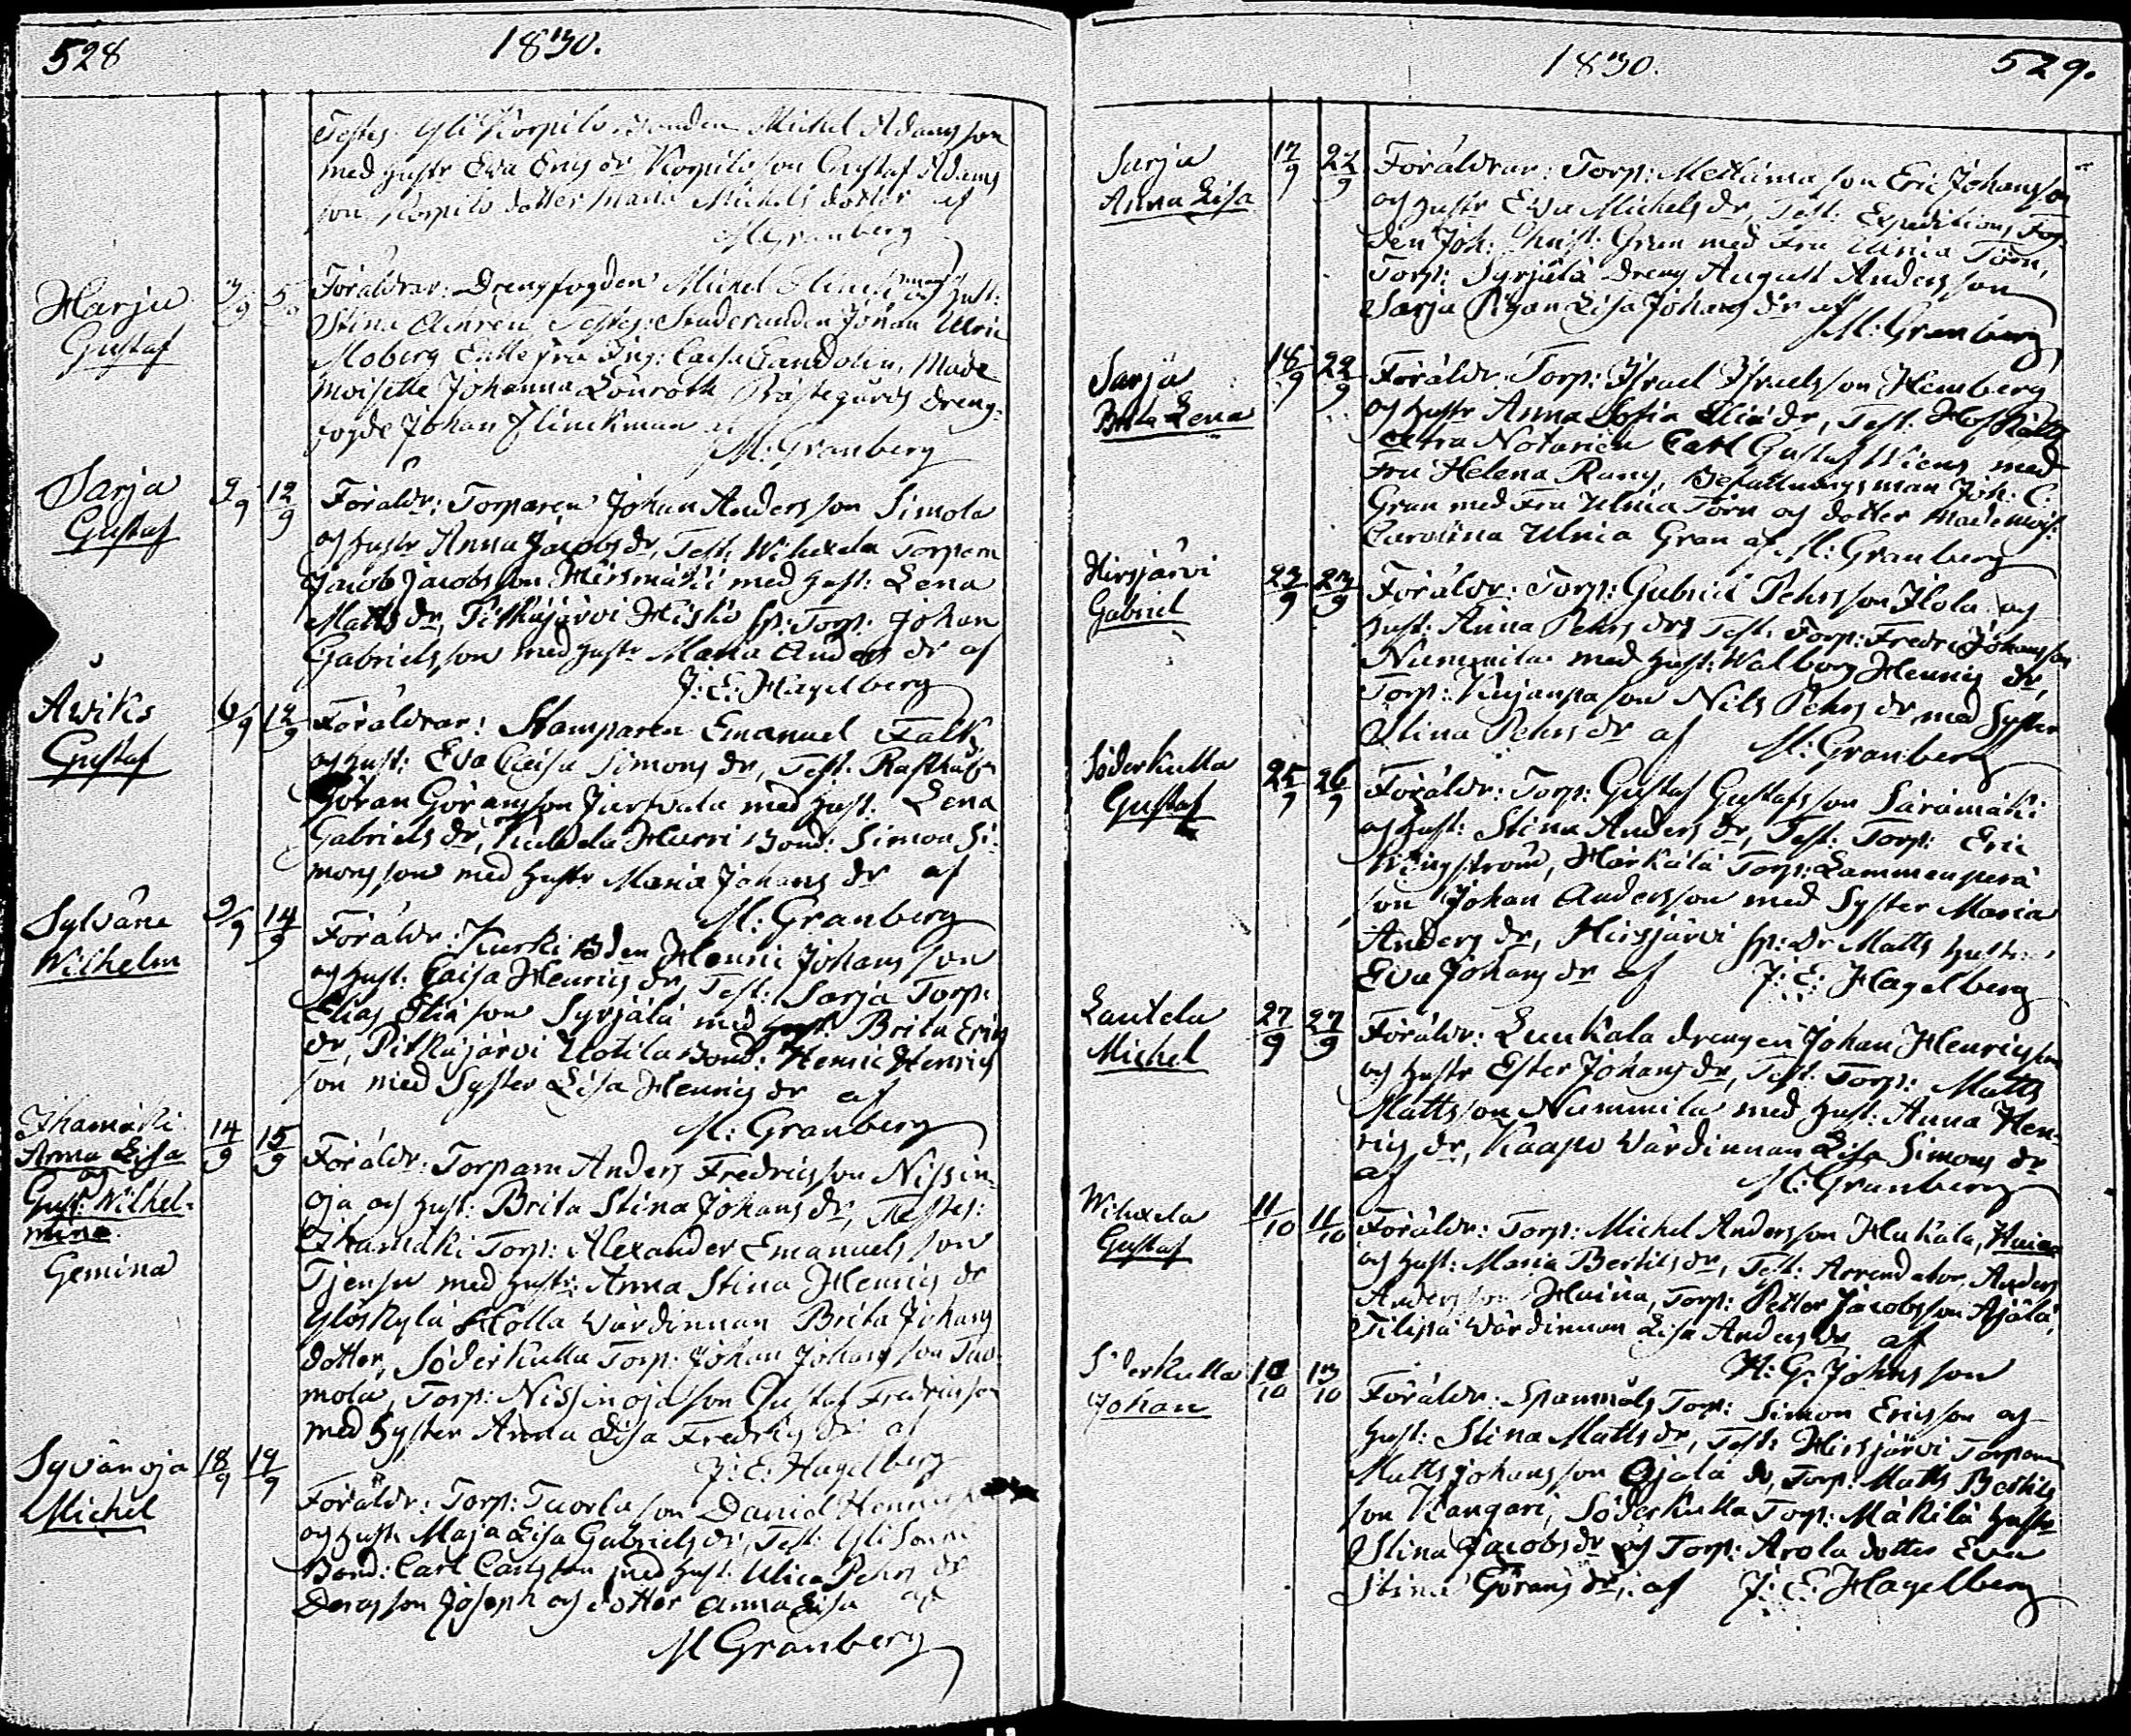 528
1830.
Testes. Yli Korpilo bonden Michel Adamsson
med hustr Eva Erics dr, Korpilo son Gustaf Adams
son Korpilo dotter Maria Michels dotter af
M. Granberg
Harju
Gustaf
3/9 5/9
Föräldrar: Drengfogden Michel och Hust:
Stina Achren Testes: Studeranden Johan Ulric
Moberg Enkefru Ing: Caisa Gandolin, Made
moiselle Johanna Lönroth Prästegårds dreng-
fogde Johan Flinckman af
M: Granberg
Sarja
Gustaf
9/9 12/9
Föräldr: Torparen Johan Andersson Simola
og hustr Anna Jacobs dr, Test: Wihxela Torparn
Jacob Jacobsson Hirsmäki med hust: Lena
Matts dr, Pitkäjärvi Hiskio sp: Torp: Johan
Gabrielsson med hustr Maria Anders dr af
J: E: Hagelberg
Awiks
Gustaf
6/9 12/9
Föräldrar: Stamparen Emanuel Falk
og hust: Eva Caisa Simons dr, Test: Rusthåll:
Göran Göransson Jursvala med hust. Lena
Gabriels dr, Kuldela Hurri Bond: Simon Si-
monsson med hustr Maria Johans dr af
M: Granberg
Sylvāne
Wilhelm
9/9 14/9
Föräldr: Kurki Bden Henric Johans son
og hust: Caisa Henrics dr, Test: Sarja Torp:
Elias Elia son Syrjälä med hust Brita Erics
dr, Pitkäjärvi Uotila Bond: Henric Henrics
son med Syster Lisa Henrics dr af
M: Granberg
Ihamäki
Anna Lisa
og
Gust: Wilhel-
mina
Gemina
14/9 15/9
Föräldr: Torparn Anders Fredricsson Nissin-
oja og hust: Brita Stina Johans dr, Testes:
Ihamäki Torp: Alexander Emanuels son
Tjensu med hustr: Anna Stina Henrics dr
Yloskylä Hølla Värdinnan Brita Johans
dotter, Söderkulla Torp: Johan Johans son Tuo
mola, Torp: Nissinoja son Gustaf Fredricsson
med Syster Anna Lisa Fredrics dr af
J: E: Hagelberg
Syvänoja
Michel
18/9 19/9
Föräldr: Torp: Tuorla son Daniel Henricsson
og hustr Maja Lisa Gabriels dr, Test: Yli Sonni
Bond: Carl Carlsson med hust. Ulica Pehrs dr
Deras son Joseph og dotter Anna Lisa af
M Granberg
1830.
529.
Sarja
Anna Lisa
17/9 22/9
Föräldrar: Torp: Mettima son Eric Johansson
og hustr Eva Michels dr, Test: Expeditions Fog-
den Joh: Christ: Gran med Fru Ulrica Törn,
Torp: Syrjälä Dreng August Andersson
Sarja Pigan Lisa Johans dr af
M: Granberg
Sarja
Brita Lena
18/9 22/9
Föräldr: Torp: Israel Israelsson Hemberg
og hustr Anna Sofia Elia dr, Test. Hofrätts
extra Notarien Carl Gustaf Wiens med
Fru Helena Rang, Befallningsman Joh: C:
Gran med Fru Ulrica Törn og dotter Mademois:
Carolina Ulrica Gran af M: Granberg
Hirsjärvi
Gabriel
23/9 23/9
Föräldr: Torp: Gabriel Pehrsson Ilola og
hust: Anna Pehrs dr, Test: Torp: Fredric Johansson
Nummila med hust: Walborg Henrics dr,
Torp: Kujanpä son Nils Pehrs dr med Syster
Stina Pehrs dr af M: Granberg
Söderkulla
Gustaf
25/9 26/9
Föräldr: Torp: Gustaf Gustafsson Säramäki
og hust: Stina Anders dr, Test: Torp: Eric
Wingström, Härkälä Torp: Lammenperä
son Johan Andersson med Syster Maria
Anders dr, Hirsjärvi sp: Dr Matts hustru
Eva Johans dr af J: E: Hagelberg
Lautela
Michel
27/9 27/9
Föräldr: Luukala drengen Johan Henricsson
og hustr Ester Johans dr, Test: Torp: Matts
Mattsson Nummila med hust: Anna Hen-
rics dr, Kaapo Värdinnan Lisa Simons dr
af M: Granberg
Wihxela
Gustaf
11/10 11/10
Föräldr: Torp: Michel Andersson Hukala,
og hust: Maria Bertils dr, Test: Arrendator Anders
Andersson Huina, Torp: Petter Jacobsson Ajälä,
Tilipä Värdinnan Lisa Anders dr af
H: G: Johnsson
Söderkulla
Johan
10/10 13/10
Föräldr: Spanmåls Torp: Simon Ericsson og
hust: Stina Matts dr, Test: Hirsjärvi Torparn
Matts Johansson Ojala do, Torp: Matts Bertils
son Kangari, Söderkulla Torp: Mäkilä hustr
Stina Jacobs dr og Torp: Arola dotter Eva
Stina Görans dr, af J: E: Hagelberg